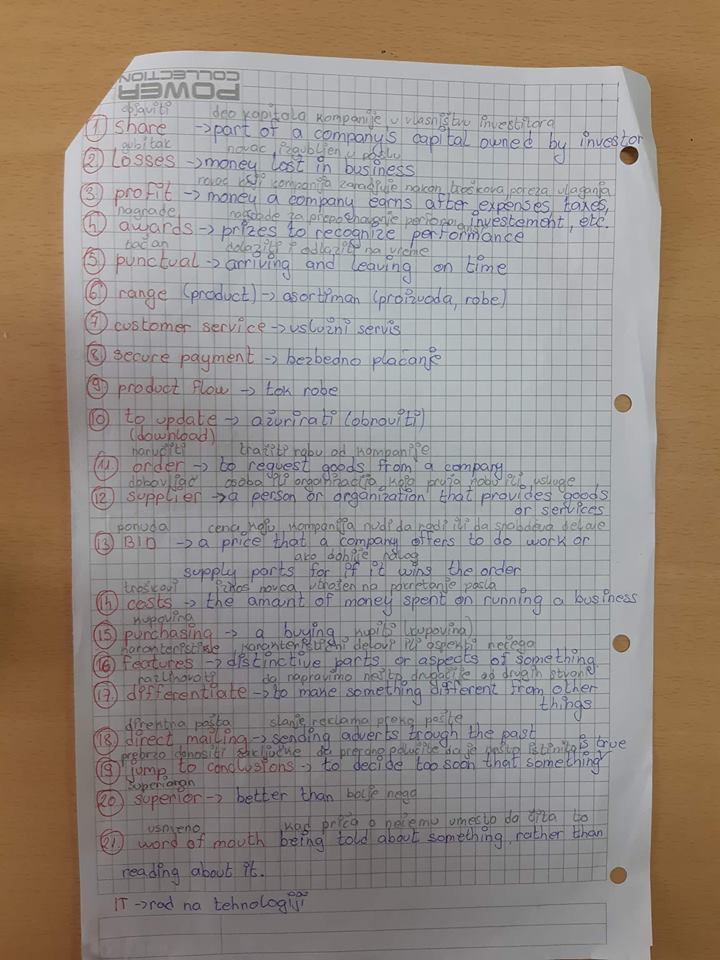 POWER
COLLECTION
objaviti deo kapitala kompanije u vlasništvu investitora
1 share → part of a company's capital owned by investor
gubitak novac izgubljen u poslu
2 Losses → money lost in business
novac koji kompanija zarađuje nakon troškova poreza ulaganja
3. profit → money a company earns after expenses taxes,
nagrade nagrade za investement, etc.
4 awards → prizes to recognize performance
tačan dolaziti i odlaziti na vreme
5 punctual → arriving and leaving on time
6 range (product) → asortiman (proizvoda, robe)
7 customer service → uslužni servis
8 secure payment → bezbedno plaćanje
9 product flow → tok robe
10 to update → ažurirati (obnoviti)
(download)
naručiti tražiti robu od kompanije
11 order → to request goods from a company
dobavljač osoba ili organizacija koja pruža robu ili usluge
12 supplier → a person or organization that provides goods
or services
ponuda cena koju kompanija nudi da radi ili da snabdeva delove
13 BID → a price that a company offers to do work or
ako dobije nalog
supply parts for if it wins the order
troškovi iznos novca utrošen na pokretanje posla
14 costs → the amant of money spent on running a business
kupovina
15 purchasing → a buying kupiti (kupovina)
karakteristike karakteristični delovi ili aspekti nečega
16 features → distinctive parts or aspects of something
razlikovati da napravimo nešto drugačije od drugih stvari
17 differentiate → to make something different from other
things
direktna pošta slanje reklama preko pošte
18 direct mailing → sending adverts trough the past
prebrzo donositi zaključke da prerano odlučite da je nešto istinito is true
19 jump to conclusions → to decide too soon that something
superioran
20 superior → better than bolje nego
usmeno kad priča o nečemu umesto da čita to
21 word of mouth being told about something, rather than
reading about it.
IT → rad na tehnologiji